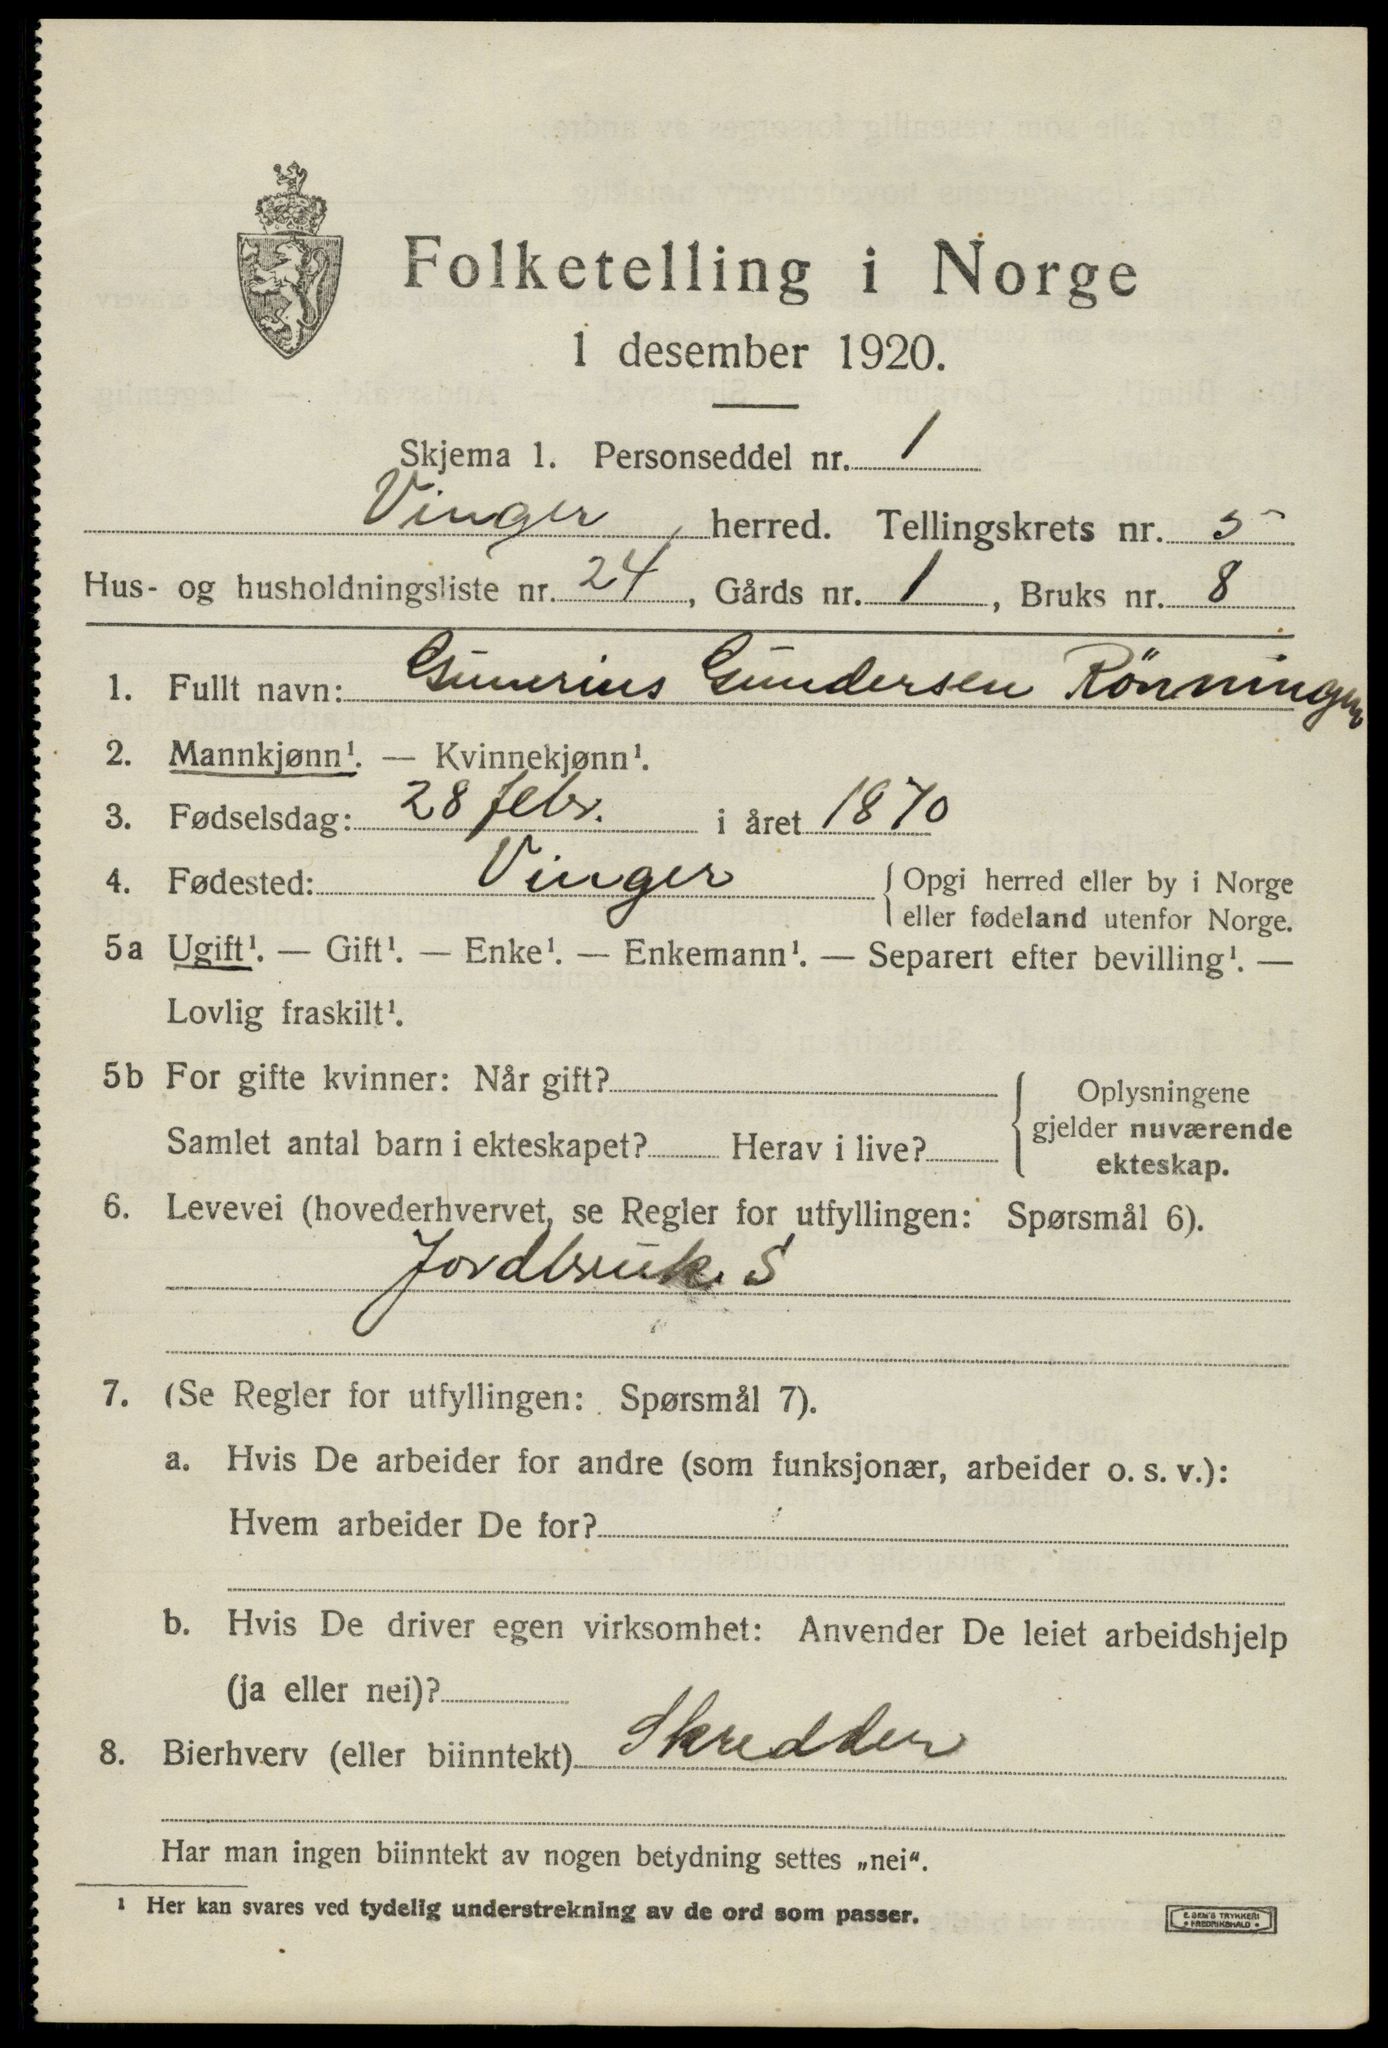 Folketelling i Norge
1 desember 1920.
Skjema 1. Personseddel nr. 1
Vinger herred. Tellingskrets nr. 5
Hus- og husholdningsliste nr. 24, Gårds nr. 1, Bruks nr. 8
1. Fullt navn: Gunerius Gundersen Rönningen
2. Mannkjønn¹. — Kvinnekjønn¹.
3. Fødselsdag: 28 febr. i året 1870
4. Fødested: Vinger { Opgi herred eller by i Norge
eller fødeland utenfor Norge.
5a Ugift¹. — Gift¹. — Enke¹. — Enkemann¹. — Separert efter bevilling¹. —
Lovlig fraskilt¹.
5b For gifte kvinner: Når gift?
Samlet antal barn i ekteskapet? Herav i live?
{ Oplysningene
gjelder nuværende
ekteskap.
6. Levevei (hovederhvervet, se Regler for utfyllingen: Spørsmål 6).
Jordbruk. S
7. (Se Regler for utfyllingen: Spørsmål 7).
a. Hvis De arbeider for andre (som funksjonær, arbeider o. s. v.):
Hvem arbeider De for?
b. Hvis De driver egen virksomhet: Anvender De leiet arbeidshjelp
(ja eller nei)?
8. Bierhverv (eller biinntekt) Skredder
Har man ingen biinntekt av nogen betydning settes „nei".
¹ Her kan svares ved tydelig understrekning av de ord som passer.
E. SEM'S TRYKKERI
• FREDRIKSHALD •